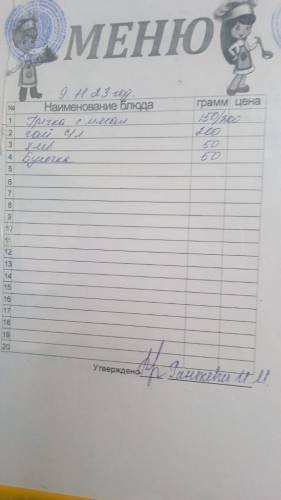 МЕНЮ
9 11 23 год.
№ Наименование блюда грамм цена
1 Гречка с мясом 150/100
2 чай с/л 200
3 хлеб 50
4 Булочка 50
5
6
7
8
9
10
11
12
13
14
15
16
17
18
19
20
Утверждено